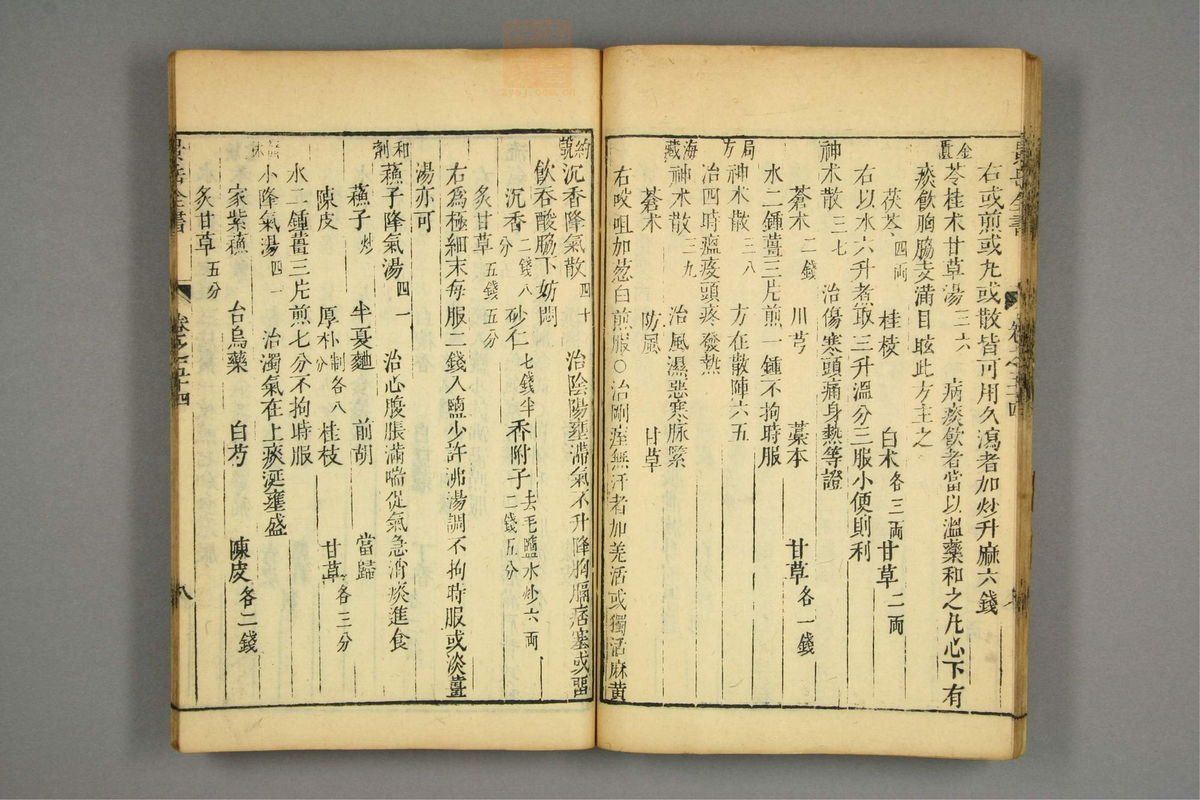 右或煎或丸或散皆可用久瀉者加炒升麻六錢
金匱
苓桂术甘草湯三六 病痰飲者當以溫藥和之凡心下有
痰飲胸脇支滿目眩此方主之
茯苓四両 桂枝 白术各三両 甘草二両
右以水六升煮取三升溫分三服小便則利
神术散三七 治傷寒頭痛身熱等證
蒼术二錢 川芎 藁本 甘草各一錢
水二鍾薑三片煎一鍾不拘時服
局方
神术散三八 方在散陣六五
治四時瘟疫頭疼發熱
海藏
神术散三九 治風濕惡寒脉緊
蒼术 防風 甘草
右㕮咀加葱白煎服○治剛痓無汗者加羌活或獨活麻黄
約說
沉香降氣散四十 治陰陽壅滯氣不升降胸膈痞塞或留
飲吞酸脇下妨悶
沉香二錢八分 砂仁七錢半 香附子去毛鹽水炒六両二錢五分
炙甘草五錢五分
右爲極細末每服二錢入鹽少許沸湯調不拘時服或淡薑
湯亦可
和劑
蘓子降氣湯四一 治心腹脹滿喘促氣急消痰進食
蘓子炒 半夏麯 前胡 當歸
陳皮 厚朴制各八分 桂枝 甘草各三分
水二鍾薑三片煎七分不拘時服
小降氣湯四一 治濁氣在上痰涎壅盛
家紫蘓 台烏藥 白芍 陳皮各二錢
炙甘草五分
卷之五十四
八